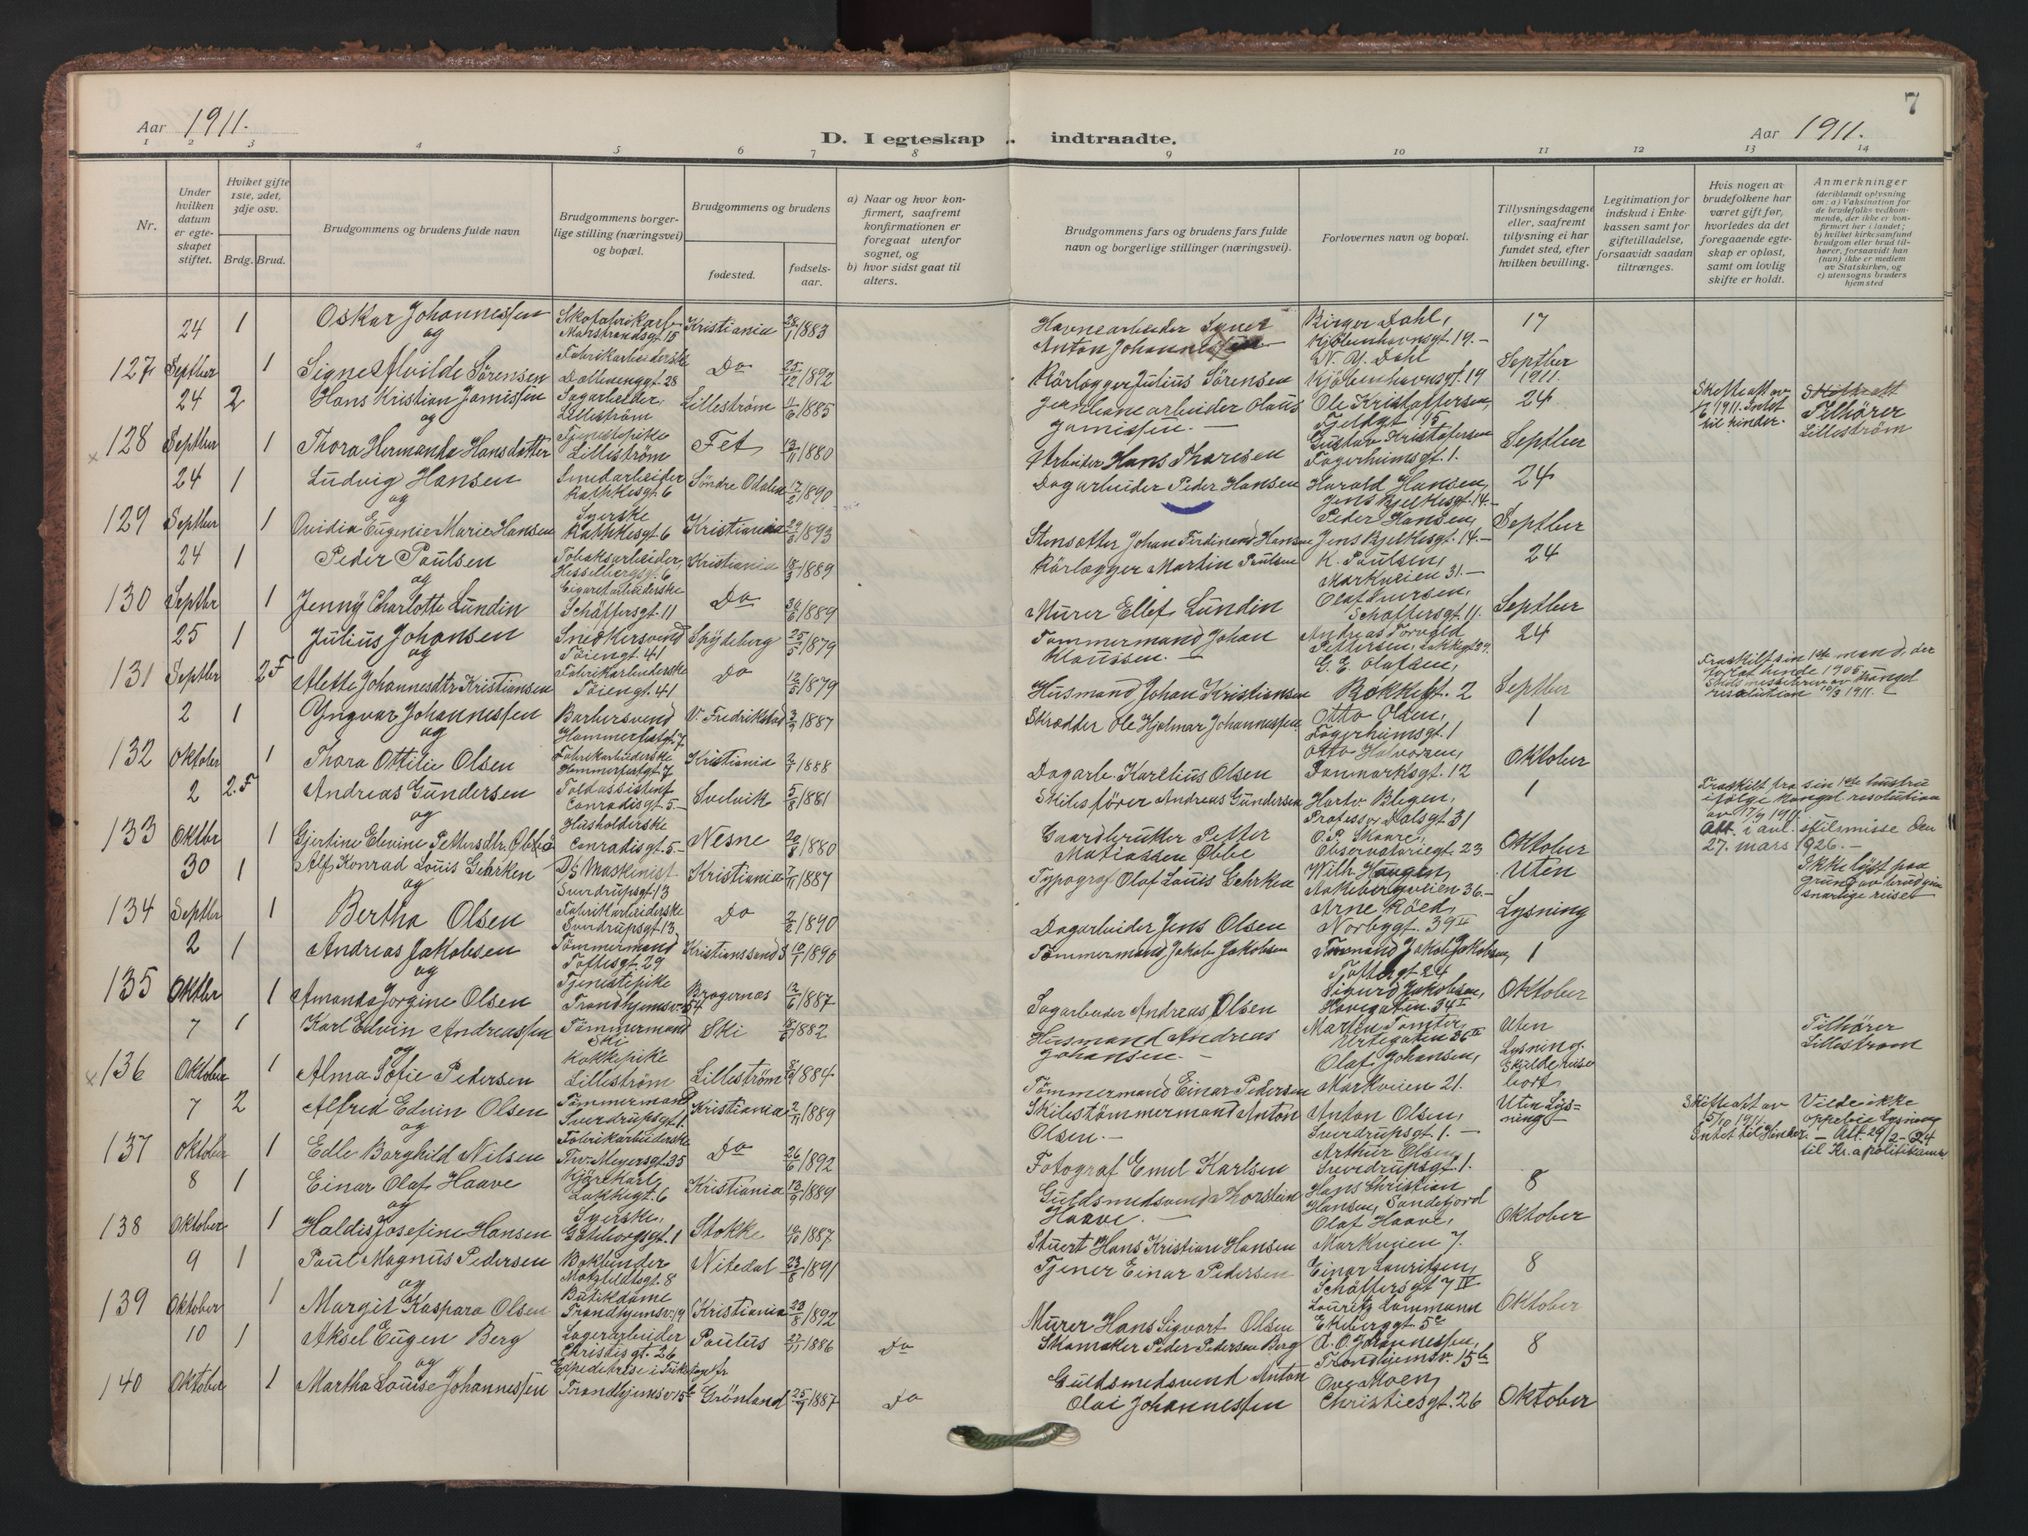 Aar 1911.
D. I egteskap indtraadte.
Aar 1911.
7
1 2 3 4 5 6 7 8 9 10 11 12 13 14
Nr.
Under hvilken datum er egteskapet stiftet.
Hviket gifte 1ste, 2det, 3dje osv.
Brdg. Brud.
Brudgommens og brudens fulde navn
Brudgommens borgerlige stilling (næringsvei) og bopæl.
Brudgommens og brudens
fødested.
fødselsaar.
a) Naar og hvor konfirmert, saafremt konfirmation er foregaat utenfor sognet, og
b) hvor sidst gaat til alters.
Brudgommens fars og brudens fars fulde navn og borgerlige stillinger (næringsvei).
Forlovernes navn og bopæl.
Tillysningsdagene eller, saafremt tillysning ei har fundet sted, efter hvilken bevilling.
Legitimation for indskud i Enkekassen samt for giftetilladelse, forsaavidt saadan tiltrænges.
Hvis nogen av brudefolkene har været gift før, hvorledes da det foregaaende egteskap er opløst, samt om lovlig skifte er holdt.
Anmerkninger
127 24 Septbr 1 1
Oskar Johannessen
og
Signe Alvilde Sörensen
Marstrandsgt. 15
Fabrikarbeiderske
Dællenenggt. 28
Kristiania 28/1 1883
Do 25/12 1892
Havnearbeider
Anton Johannessen
Rörlægger Julius Sörensen
Birger Dahl,
Kjöbenhavnsgt. 19.
Dahl
Kjöbenhavnsgt. 19
17 Septber 1911.
128 24 Septbr 2 1
Hans Kristian Jamissen
og
Thora Hermanda Hansdatter
Sagarbeider,
Lilleström
Tjenestepike
Lilleström
Lilleström 11/6 1885
Fet 13/11 1880
Jernbanearbeider Olaus
Jamissen.
Arbeider Hans Thoresen
Ole Kristoffersen,
Gustav Kristofersen
Fagerheimsgt. 1.
24 Septber
Intet til hinder.
Tilhörer
Lilleström
129 24 Septbr 1 1
Ludvig Hansen
og
Ovidia Eugenie Marie Hansen
Smedarbeider
Rathkesgt. 6
Syerske
Rathkesgt. 6
Söndre Odalen 17/2 1890
Kristiania 1893
Dagarbeider Peder Hansen
Johan Ferdinand Hansen
Harald Hansen,
Jens Bjelkesgt. 14.
Peder Hansen,
Jens Bjelkesgt. 14.
24 Septber
130 24 Septbr 1 1
Peder Paulsen
og
Jenny Charlotte Lundin
Tobaksarbeider,
Hesselbergsgt. 6
Cigaretarbeiderske
Schäffersgt. 11
Kristiania 18/3 1889
Do 1889
Rörlægger Martin Paulsen
Murer Ellef Lundin
K. Paulsen,
Markveien 31.
Schäffersgt. 11.
24 Septber
131 25 Septbr 1 2 F
Julius Johansen
og
Alette Johannesdtr Kristiansen
Snedkersvend
Töiengt. 41
Fabrikarbeiderske
Töiengt. 41
Spydeberg 25/5 1879
Do 12/5 1879
Tömmermand Johan
Klaussen.
Husmand Johan Kristiansen
Andreas Torvald
Pettersen,
G. E. Olafsen,
24 Septber
Fraskilt sin 1ste mand, der
forlot hende 1905
resolution 10/3 1911.
132 2 Oktober 1 1
Yngvar Johannessen
og
Thora Ottilie Olsen
Barbersvend
Hammerfestgt. 7
Fabrikarbeiderske
Hammerfestgt. 7
V. Fredrikstad 1887
Kristiania 1888
Skrædder Ole Hjalmar Johannessen
Dagarb. Karelius Olsen
Otto Olsen,
Fagerheimsgt. 1
Otto Halvorsen,
Danmarksgt. 12
1 Oktober
133 2 Oktbr 2. F 1
Andreas Gundersen
og
Gjertine Edvine Pettersdtr. Obbe
Toldassistent
Conradisgt. 5
Husholderske
Conradisgt. 5
Svelvik 5/8 1881
Nesne 20/8 1880
Skibsförer Andreas Gundersen
Gaardbruker Petter
Matiassen Obbe
Professor Dalsgt. 31
O.P. Skaare,
Observatoriegt. 23
1 Oktober
Fraskilt fra sin 1ste hustru
ifölge kongel. resolution
av 17/9 1911.
27. mars 1926.
134 30 Septbr 1 1
Alf Konrad Louis Gehrken
og
Bertha Olsen
D/s Maskinist
Sverdrupsgt. 13
Fabrikarbeiderske
Sverdrupsgt. 13
Kristiania 7/11 1887
Do 1890
Typograf Olaf Louis Gehrken
Dagarbeider Jens Olsen
Wilh. Haugen,
Aakebergveien 36.
Arne Röed,
Norbygt. 39 II
Uten Lysning
Ikke löst paa
grund av brudgom
snarlige reise
135 2 Oktbr 1 1
Andreas Jakobsen
og
Amanda Jorgine Olsen
Tömmermand
Toftesgt. 29
Tjenestepike
Trondhjemsv. 54
Kristianssund S 10/7 1890
Bragernes 12/6 1887
Tömmermand Jakob Jakobsen
Sagarbeider Andreas Olsen
Jakob Jakobsen,
Toftesgt. 24
Sigurd Jakobsen,
1 Oktober
136 7 Oktober 1 1
Karl Edvin Andreassen
og
Alma Sofie Pedersen
Tömmermand
Ski
Kokkepike
Lilleström
Ski 1882
Lilleström 1884
Husmand Andreas
Johansen.
Tömmermand Einar Pedersen
Marten Tomter,
Urtegaten 36 II
Olaf Johansen,
Markveien 21.
Uten Lysning.
Skulde reise
bort
Tilhörer
Lilleström
137 7 Oktober 2 1
Alfred Edvin Olsen
og
Edle Borghild Nilsen
Tömmermand
Sverdrupsgt. 1.
Fabrikarbeiderske
Thv. Meyersgt. 35
Kristiania 2/11 1889
Do 26/6 1892
Skibstömmermand Anton
Olsen.
Fotograf Emil Karlsen
Anton Olsen,
Sverdrupsgt. 1.
Arthur Olsen,
Sverdrupsgt. 1.
Uten Lysning
Skifteatt av
5/10 1911.
Intet til Hinder.
Vilde ikke
oppebie Lysning
138 8 Oktober 1 1
Einar Olaf Haave
og
Haldis Josefine Hansen
Kjörekarl,
Lakkegt. 6
Syerske,
Göteborgsgt. 1
Kristiania 13/9 1889
Stokke 1887
Guldsmedsvend Thorstein
Haave.
Stuert Hans Kristian Hansen
Hans Christian
Hansen, Sandefjord
Olaf Haave,
Markveien 7.
8 Oktober
139 9 Oktober 1 1
Paul Magnus Pedersen
og
Margit Kaspara Olsen
Bokbinder
Motzfeldtsgt. 8
Butikdame
Trondhjemsv. 19
Nitedal 23/8 1891
Kristiania 23/8 1892
Tjener Einar Pedersen
Murer Hans Sigvart Olsen
Einar Lauritzen,
Schäffersgt. 7 IV
Lauritz Lammann
Ekeberggt. 5c
8 Oktober
140 10 Oktober 1 1
Aksel Eugen Berg
og
Martha Louise Johannessen
Lagerarbeider
Christiesgt. 26
Trondhjemsv. 15b
Paulus 27/11 1886 Do
Grönland 25/9 1887 Do
Skomaker Peder Pedersen Berg
Guldsmedsvend Anton
Olai Johannessen
A. O. Johannessen,
Trondhjemsv. 15b
Ove Moen,
Christiesgt. 26
8 Oktober